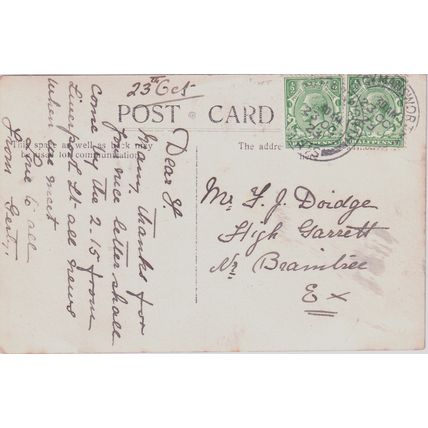 23rd Oct
POST CARD
This space, as well as back may
be used for communication.
The addre
Dear
Many thanks for
nice letter shall
come by the 2-15 from
Liverpool St. all news
when we meet
love to all
from Gerty.
Mr F. J. Doidge
High Garrett
Nr Braintree
Ex
HALFPENNY